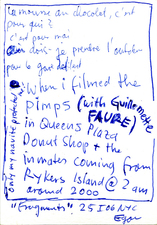 mousse au chocolat, c'est
pour qui ?
c'est pour moi
dois-je prendre l'autobus
pour le grand défilé
When I filmed the
Pimps (with Guillemette
FAURE)
in Queens Plaza
Donut Shop + the
inmates coming from
Rykers Island @ 2 am
around 2000
only my naive protection
"Fragments" 25 I 06 NYC